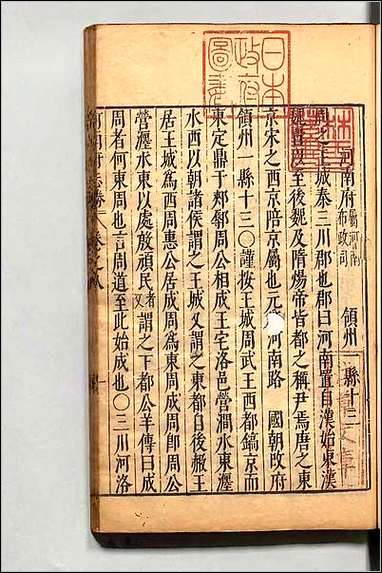 日本
政府
圖書
河南府 屬河南布政司 領州一縣十三
周之王城秦三川郡也郡曰河南置自漢始東漢
魏晉以至後魏及隋煬帝皆都之稱尹焉唐之東
京宋之西京陪京屬也元 河南路 國朝政府
領州一縣十三〇謹按王城周武王西都鎬京而
東定鼎于郟鄏周公相成王宅洛邑營澗水東瀍
水西以朝諸侯謂之王城又謂之東都自後赧王
居王城為西周惠公居成周為東周成周即周公
營瀍水東以處放頑民者又謂之下都公羊傳曰成
周者何東周也言周道至此始成也〇三川河洛